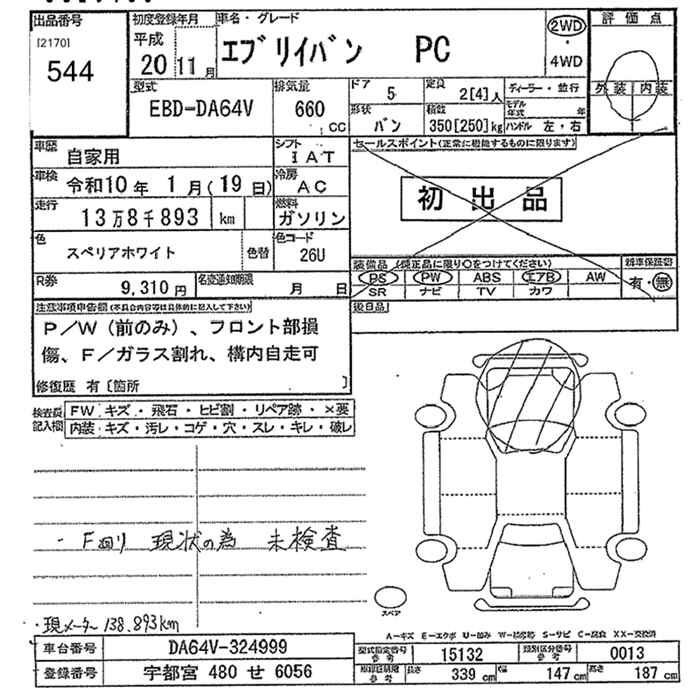 出品番号
[2170]
544
初度登録年月
平成
20 11月
車名・グレード
エブリイバン PC
2WD
・
4WD
評価点
外装 内装
型式
EBD-DA64V
排気量
660
CC
ドア
5
定員
2[4]人
形状
バン
積数
350[250]kg
ディーラー・並行
モデル年式 年
ハンドル 左・右
車歴
自家用
シフト
IAT
車検
令和10年 1月(19日)
冷房
AC
走行
13万8千893 km
燃料
ガソリン
色
スペリアホワイト
色替
色コード
26U
R券
9,310円
名変通知期限
月 日
セールスポイント(正常に機能するものに限ります)
初出品
装備品 (純正品に限り○をつけてください)
PS PW ABS エアB AW
SR ナビ TV カワ
新車保証書
有・無
後日品
注意事項申告欄(不具合内容等は具体的に記入して下さい)
P/W(前のみ)、フロント部損
傷、F/ガラス割れ、構内自走可
修復歴 有〔箇所 〕
検査員
記入欄
FW キズ・飛石・ヒビ割・リペア跡・×要
内装 キズ・汚レ・コゲ・穴・スレ・キレ・破レ
・F回り 現状の為 未検査
・現メーター 138,893km
スペア
A-キズ E-エクボ U-凹み W-補修跡 S-サビ C-腐食 XX-交換済
車台番号
DA64V-324999
登録番号
宇都宮 480 せ 6056
型式指定番号
参考
15132
類別区分番号
参考
0013
参考
長さ
339 cm
幅
147 cm
高さ
187 cm